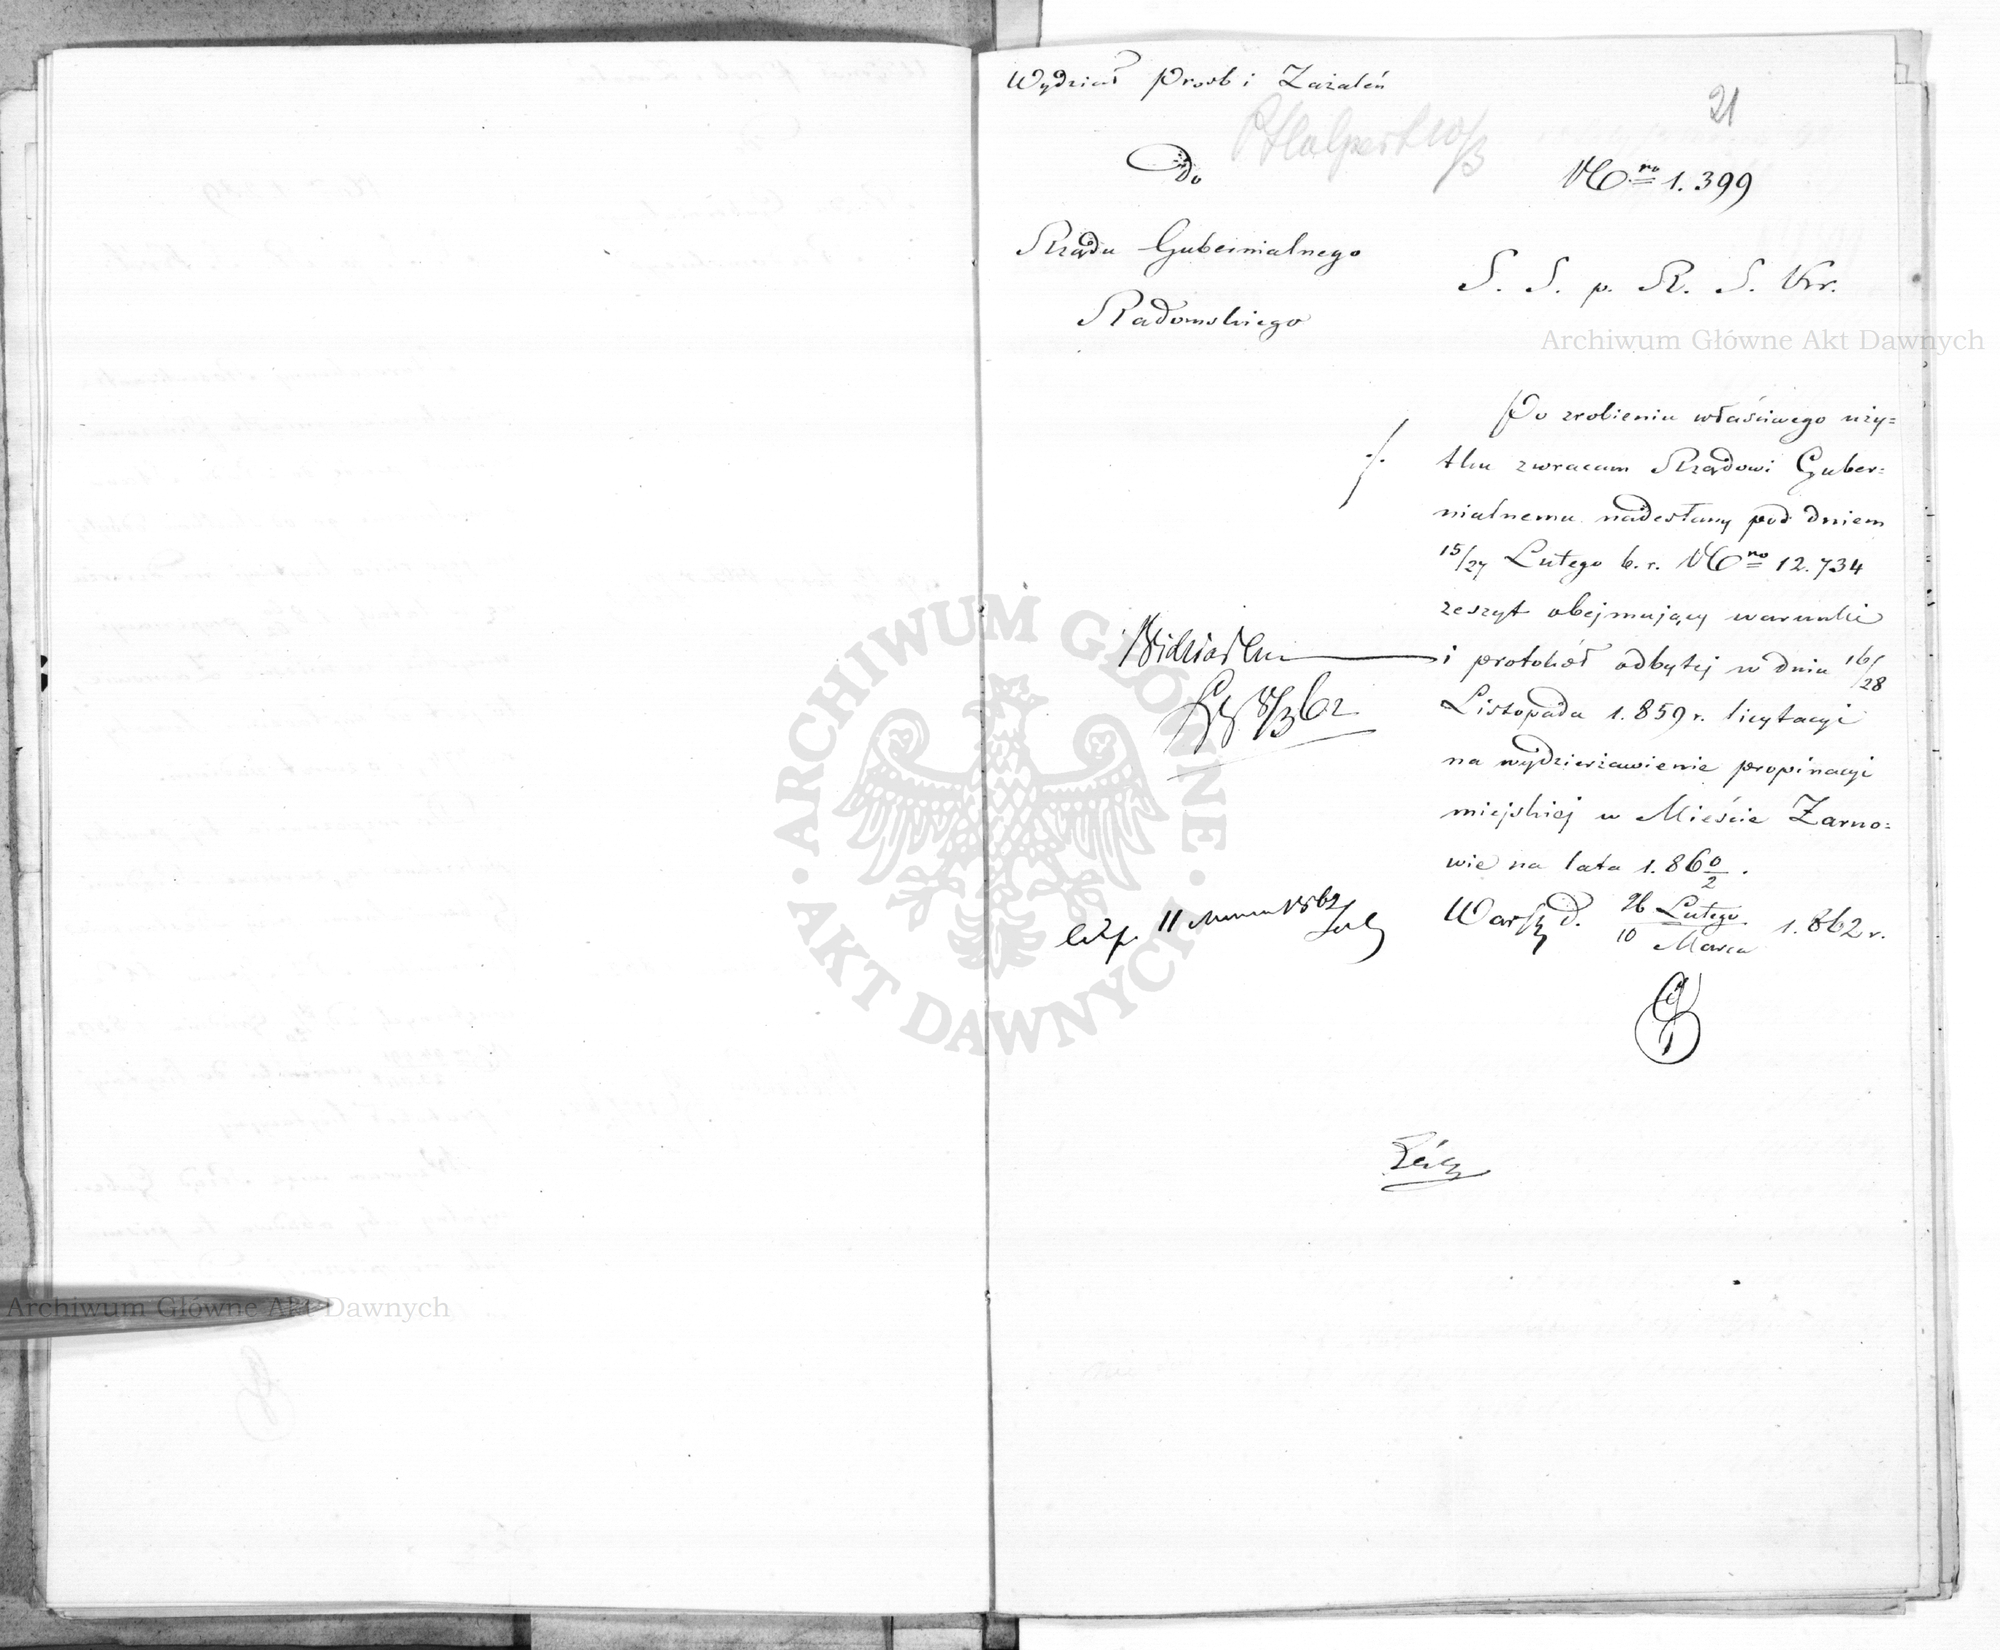 Wydział Prosb i Zażaleń
21
P Halpert 10/3
Do
Nro 1.399
Rządu Gubernialnego
Radomskiego
S. S. p. R. S. Kr.
Archiwum Główne Akt Dawnych
Po zrobieniu właściwego uży=
tku zwracam Rządowi Guber=
nialnemu nadesłany pod dniem
15/27 Lutego b. r. Nro 12.734
zeszyt obejmujący warunki
i protokół odbytej w dniu 16/28
Listopada 1.859 r. licytacyi
na wydzierżawienie propinacyi
miejskiej w Mieście Żarno=
wie na lata 1.860/2.
Warsz. d. 26 Lutego / 10 Marca 1.862 r.
Widziałem
8/3 62
Exp. 11 Marca 1862
ARCHIWUM GŁÓWNE · AKT DAWNYCH ·
Archiwum Główne Akt Dawnych